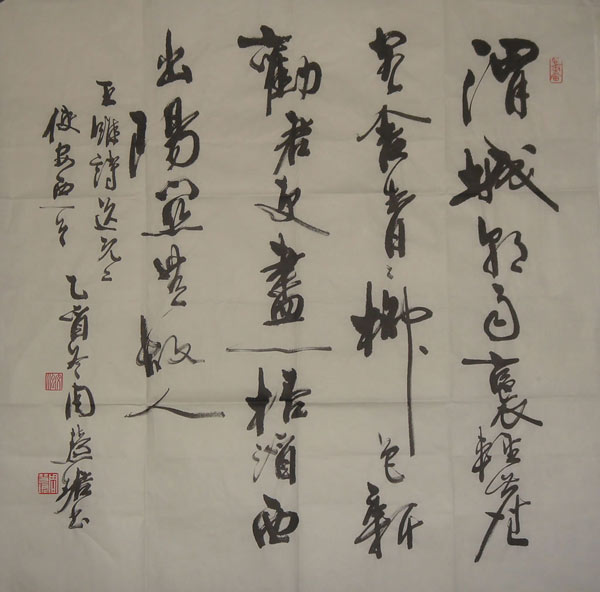 渭城朝雨裛輕塵
客舍青〻柳色新
勸君更盡一桮酒西
出陽關無故人
王維詩送元二
使安西一首
乙酉冬周慧珺书